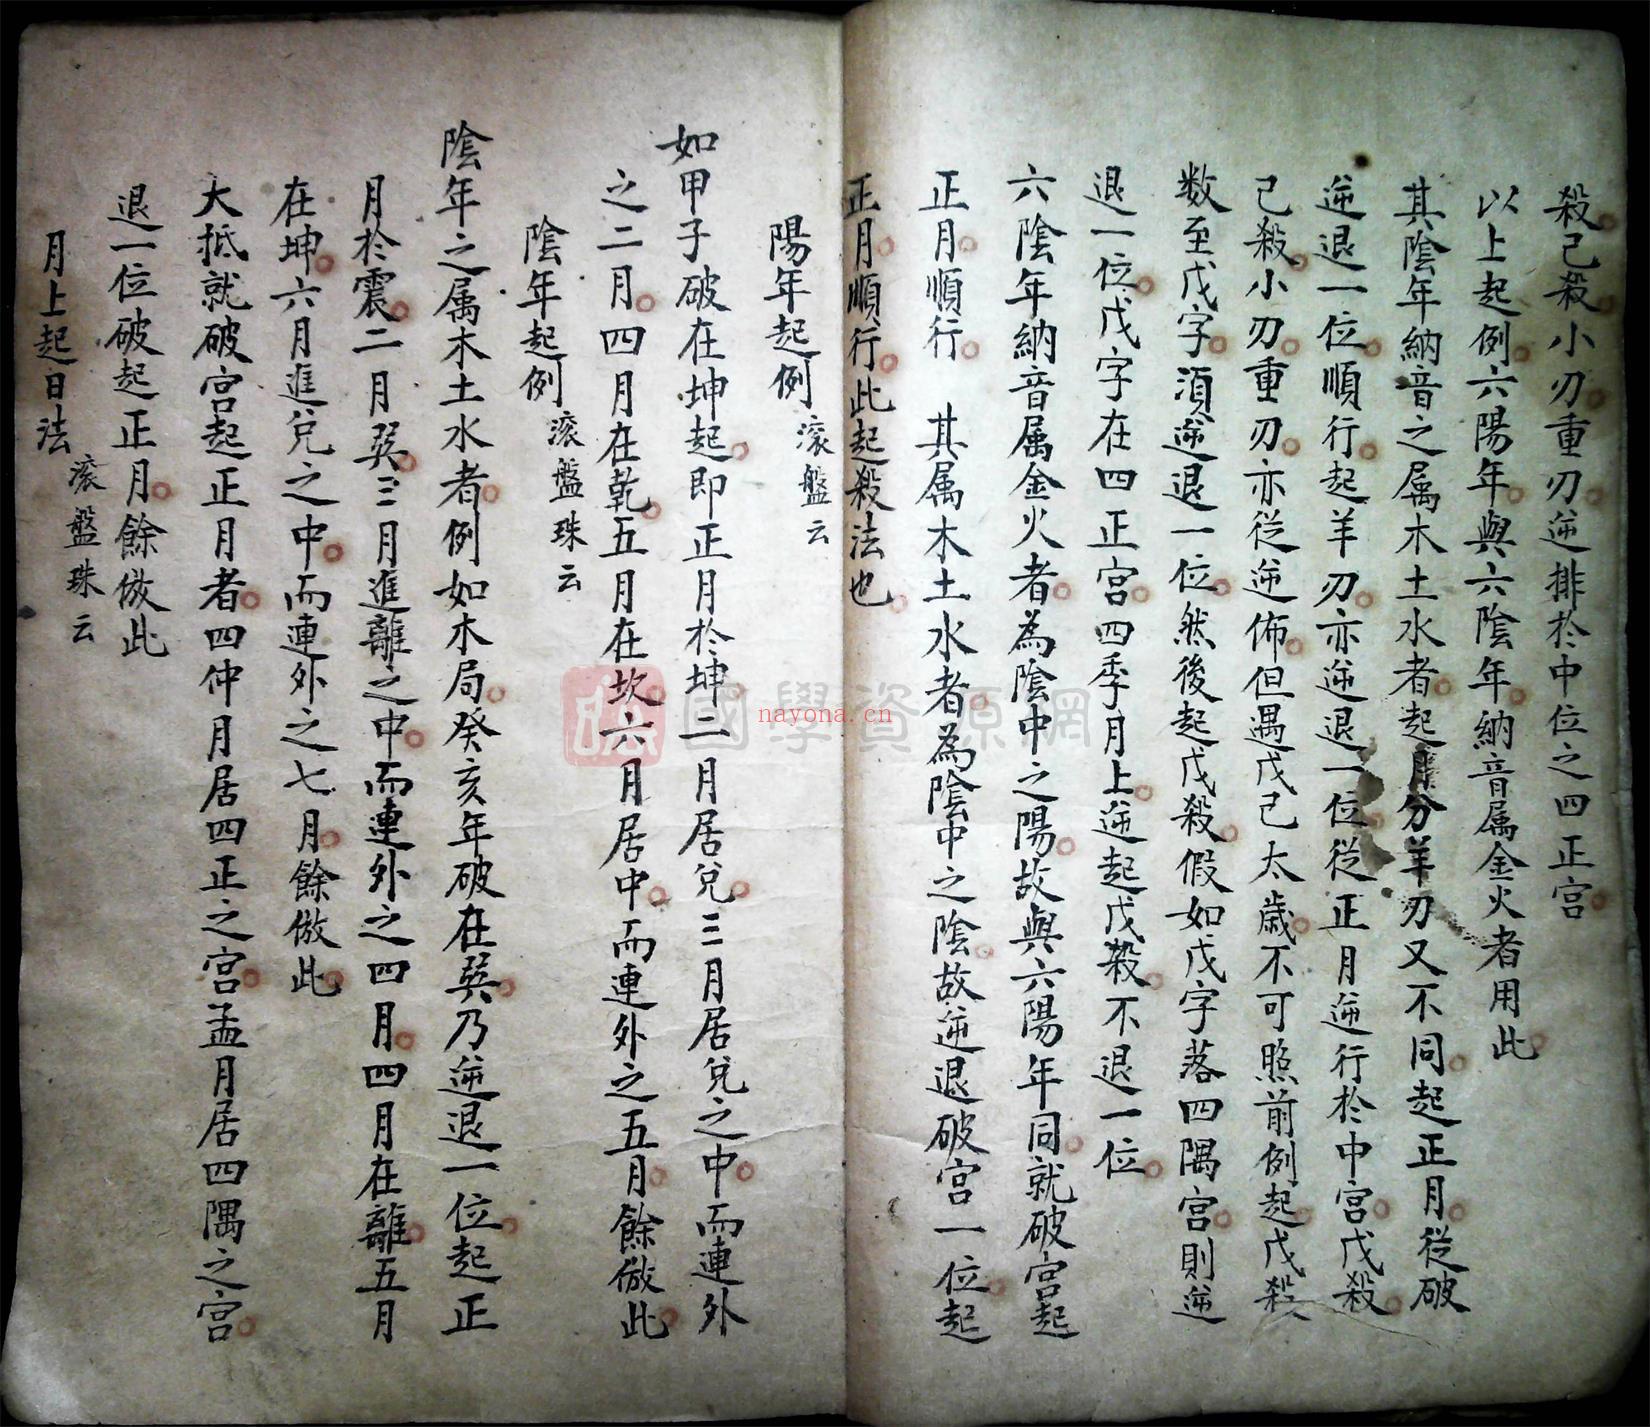 殺己殺小刃重刃逆排於中位之四正宮
以上起例六陽年與六陰年納音属金火者用此
其陰年納音之属木土水者起月分羊刃又不同起正月從破
逆退一位順行起羊刃亦逆退一位從正月逆行於中宮戊殺
己殺小刃重刃亦從逆佈但遇戊己太歲不可照前例起戊殺
数至戊字須逆退一位然後起戊殺假如戊字落四隅宮則逆
退一位戊字在四正宮四季月上逆起戊殺不退一位
六陰年納音属金火者為陰中之陽故與六陽年同就破宮起
正月順行　其属木土水者為陰中之陰故逆退破宮一位起
正月順行此起殺法也
陽年起例 滚盤云
如甲子破在坤起即正月於坤二月居兌三月居兌之中而連外
之二月四月在乾五月在坎六月居中而連外之五月餘倣此
陰年起例 滚盤珠云
陰年之属木土水者例如木局癸亥年破在巽乃逆退一位起正
月於震二月巽三月進離之中而連外之四月四月在離五月
在坤六月進兌之中而連外之七月餘倣此
大抵就破宮起正月者四仲月居四正之宮孟月居四隅之宮
退一位破起正月餘倣此
月上起日法 滚盤珠云
國學資源網
nayona.cn